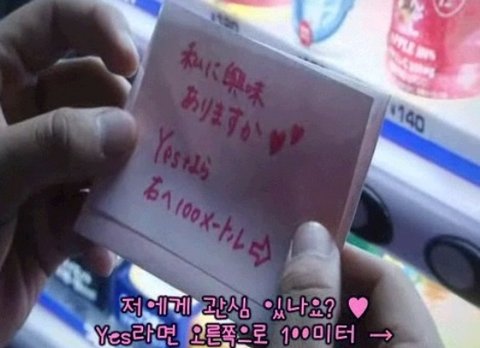 APPLE 100%
¥140
私に興味
ありますか♥♥
Yesなら
右へ100メートル⇨
저에게 관심 있나요? ♥
Yes라면 오른쪽으로 100미터 →